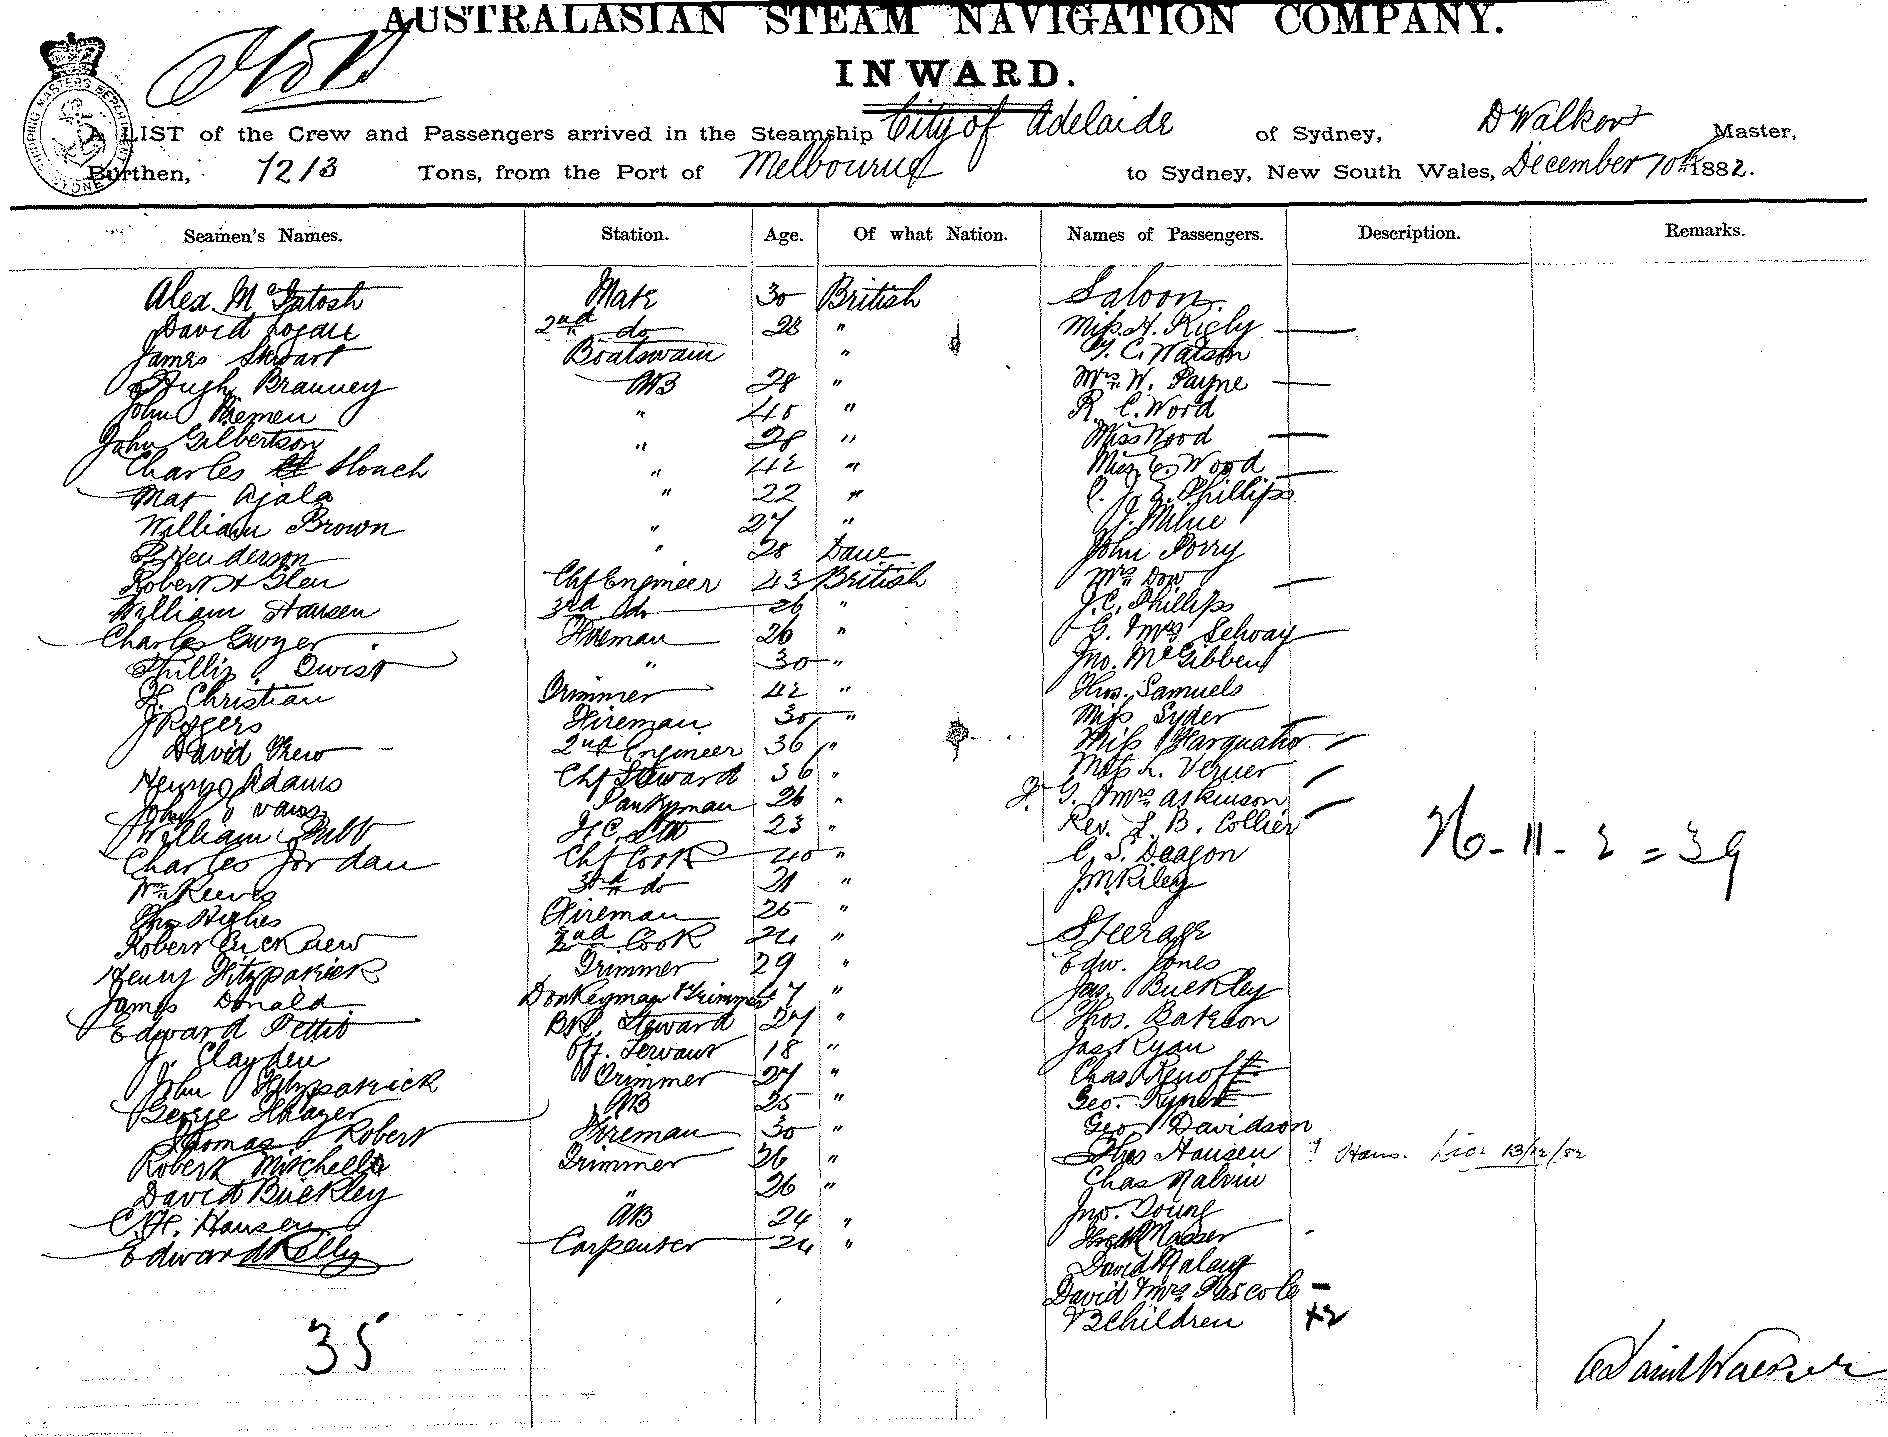 AUSTRALASIAN STEAM NAVIGATION COMPANY.
INWARD.
A LIST of the Crew and Passengers arrived in the Steamship City of Adelaide of Sydney, D Walker Master,
Burthen, 1213 Tons, from the Port of Melbourne to Sydney, New South Wales, December 10th 1882.
Seamen's Names. Station. Age. Of what Nation. Names of Passengers. Description. Remarks.
Alex. McIntosh Mate 30 British Saloon
David 2nd do 28 " Miss H. Rigby
James Stewart Boatswain " C. Watson
Hugh Branney AB 28 " Mrs W. Payne
John " 40 " R. C. Word
John Gilbertson " 28 " Miss Wood
Charles " 42 " Miss E. Wood
Mat Ajala " 22 " C. J. E. Phillips
William Brown " 27 " J. Milne
P Henderson " 28 Dane John Porry
Robert A Glen Chf Engineer 43 British Mrs Dow
William Hansen 3rd do 26 " J. C. Phillips
Charles Gwyer Fireman 26 " G. & Mrs Selway
Phillip Twist " 30 " Jno. McGibben
H. Christian Trimmer 42 " Thos. Samuels
J Rogers Fireman 30 " Miss Syder
David Thew 2nd Engineer 36 " Miss Farquahr
Henry Adams Chf Steward 36 " Miss L. Verner
John Evans Pantryman 26 " G. & Mrs Askinson
William Tubb 23 " Rev. L. B. Collier
Charles Jordan Chf Cook 40 " C. S. Deagon
Wm Reeves 3rd do 21 " J. M. Riley
Thos Hughes Fireman 25 " Steerage
Robert 2nd Cook 24 " Edw. Jones
Henry Fitzpatrick Trimmer 29 " Jas. Buckley
James Donald Donkeyman & Trimmer 47 " Thos. Bateson
Edward Pettit Bk. Steward 27 " Jas Ryan
J. Clayden Off. Servant 18 " Chas
John Fitzpatrick Trimmer 27 " Geo.
George Thayer AB 25 " Geo Davidson
Thomas Robert Fireman 30 " Thos Hansen ? Hans. 13/12/82
Robert Mitchell Trimmer 26 " Chas Malvin
David Buckley " 26 " Jno. Young
C. H. Hansen AB 24 " Masser
Edward Kelly Carpenter 24 " David
David & Mrs Pascole
& 2 Children +2
35
26 - 11 - 2 = 39
David Walker